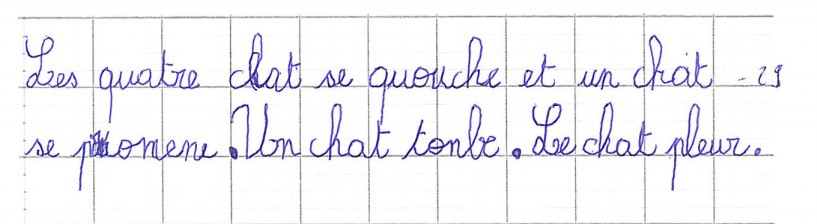 Les quatre chat se quouche et un chat - 29
se promene. Un chat tonbe. Le chat pleur.